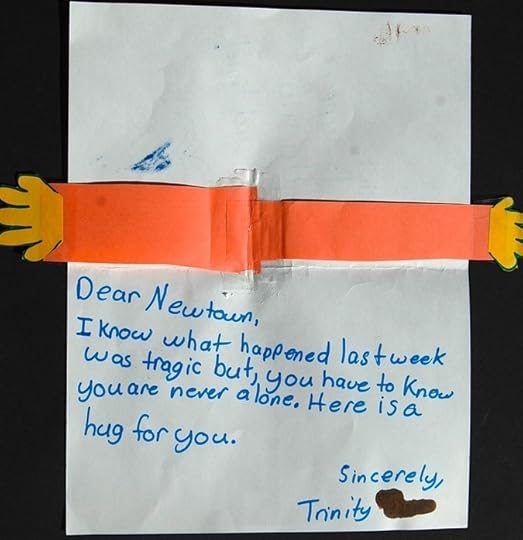 Dear Newtown,
I know what happened last week
was tragic but, you have to know
you are never alone. Here is a
hug for you.
Sincerely,
Trinity